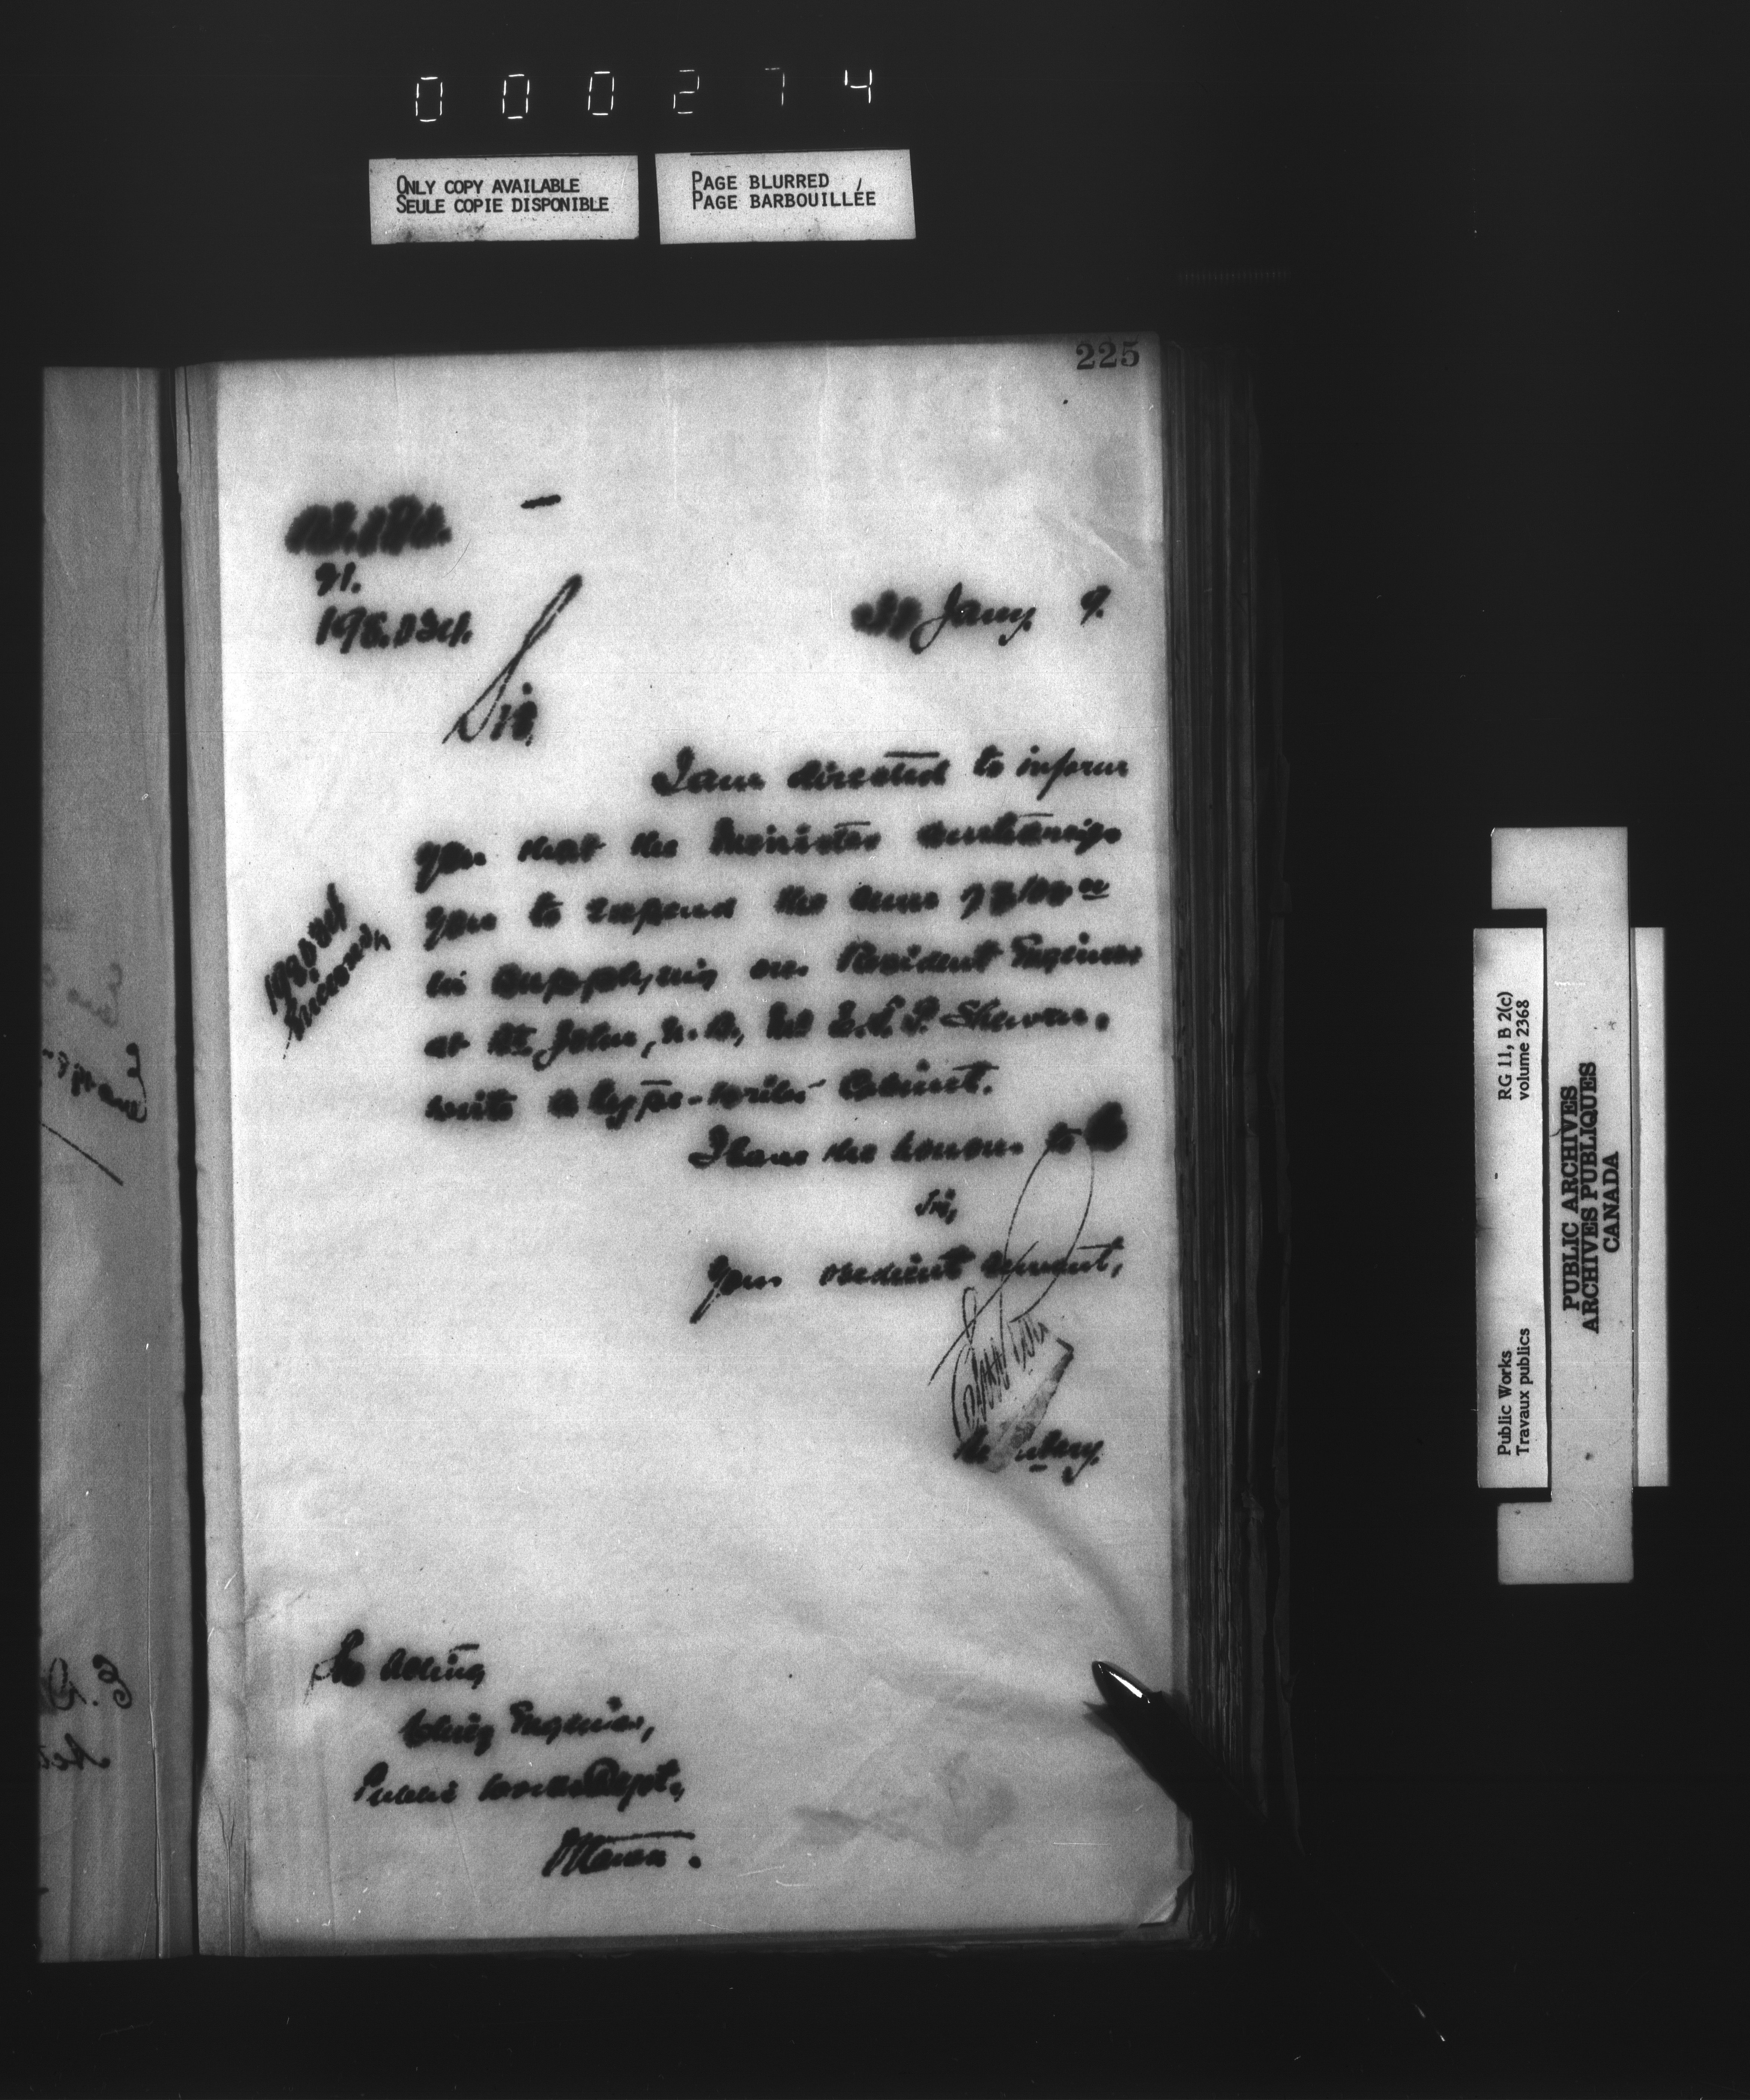 000274
ONLY COPY AVAILABLE
SEULE COPIE DISPONIBLE
PAGE BLURRED
PAGE BARBOUILLÉE
225
91.
Jany. 9.
Sir,
I am directed to inform
you that the Minister authorizes
you to expend the sum of
in supplying our Resident Engineer
at St. John, N.B., Mr E.T.P. Shewen,
with a type-writer Cabinet.
I have the honour to be
Sir,
Your obedient servant,
Secretary.
The Acting
Chief Engineer,
Public Works Dept.,
Ottawa.
RG 11, B 2(c)
volume 2368
Public Works
Travaux publics
PUBLIC ARCHIVES
ARCHIVES PUBLIQUES
CANADA